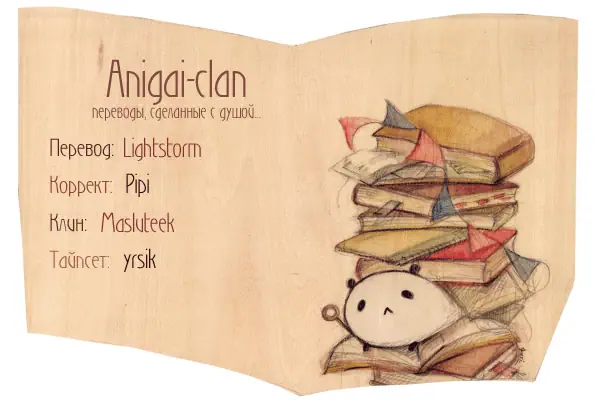 Anigai-clan
переводы, сделанные с душой...
Перевод: Lightstorm
Коррект: Pipi
Клин: Masluteek
Тайпсет: yrsik